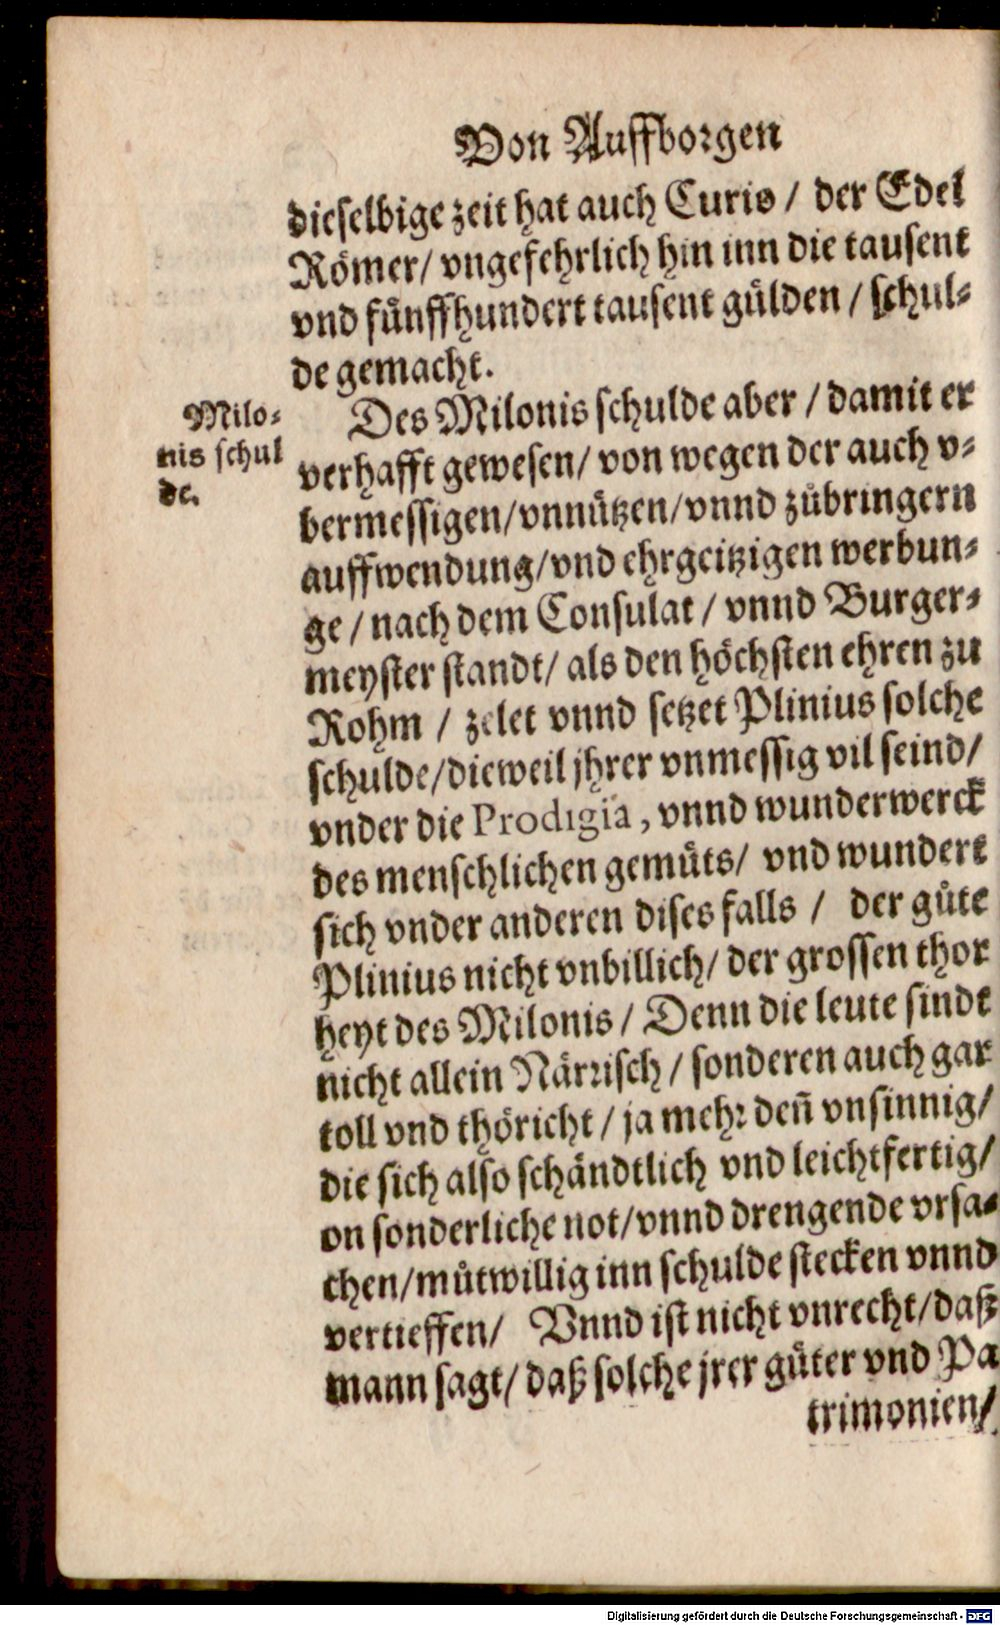 Von Auffborgen
dieselbige zeit hat auch Curio / der Edel
Römer/ vngefehrlich hin inn die tausent
vnd fünffhundert tausent gülden / schul-
de gemacht.
Milo-
nis schul
de.
Des Milonis schulde aber / damit er
verhafft gewesen/ von wegen der auch v-
bermessigen/vnnützen/vnnd zůbringern
auffwendung/vnd ehrgeitzigen werbun-
ge / nach dem Consulat / vnnd Burger-
meyster standt/ als den höchsten ehren zu
Rohm / zelet vnnd setzet Plinius solche
schulde/dieweil jhrer vnmessig vil seind/
vnder die Prodigia, vnnd wunderwerck
des menschlichen gemůts/ vnd wundert
sich vnder anderen dises falls / der gůte
Plinius nicht vnbillich/ der grossen thor
heyt des Milonis / Denn die leute sindt
nicht allein Närrisch / sonderen auch gar
toll vnd thöricht / ja mehr deñ vnsinnig/
die sich also schändtlich vnd leichtfertig/
on sonderliche not/vnnd drengende vrsa-
chen/můtwillig inn schulde stecken vnnd
vertieffen/ Vnnd ist nicht vnrecht/daß
mann sagt/ daß solche jrer güter vnd Pa
trimonien/
Digitalisierung gefördert durch die Deutsche Forschungsgemeinschaft - DFG